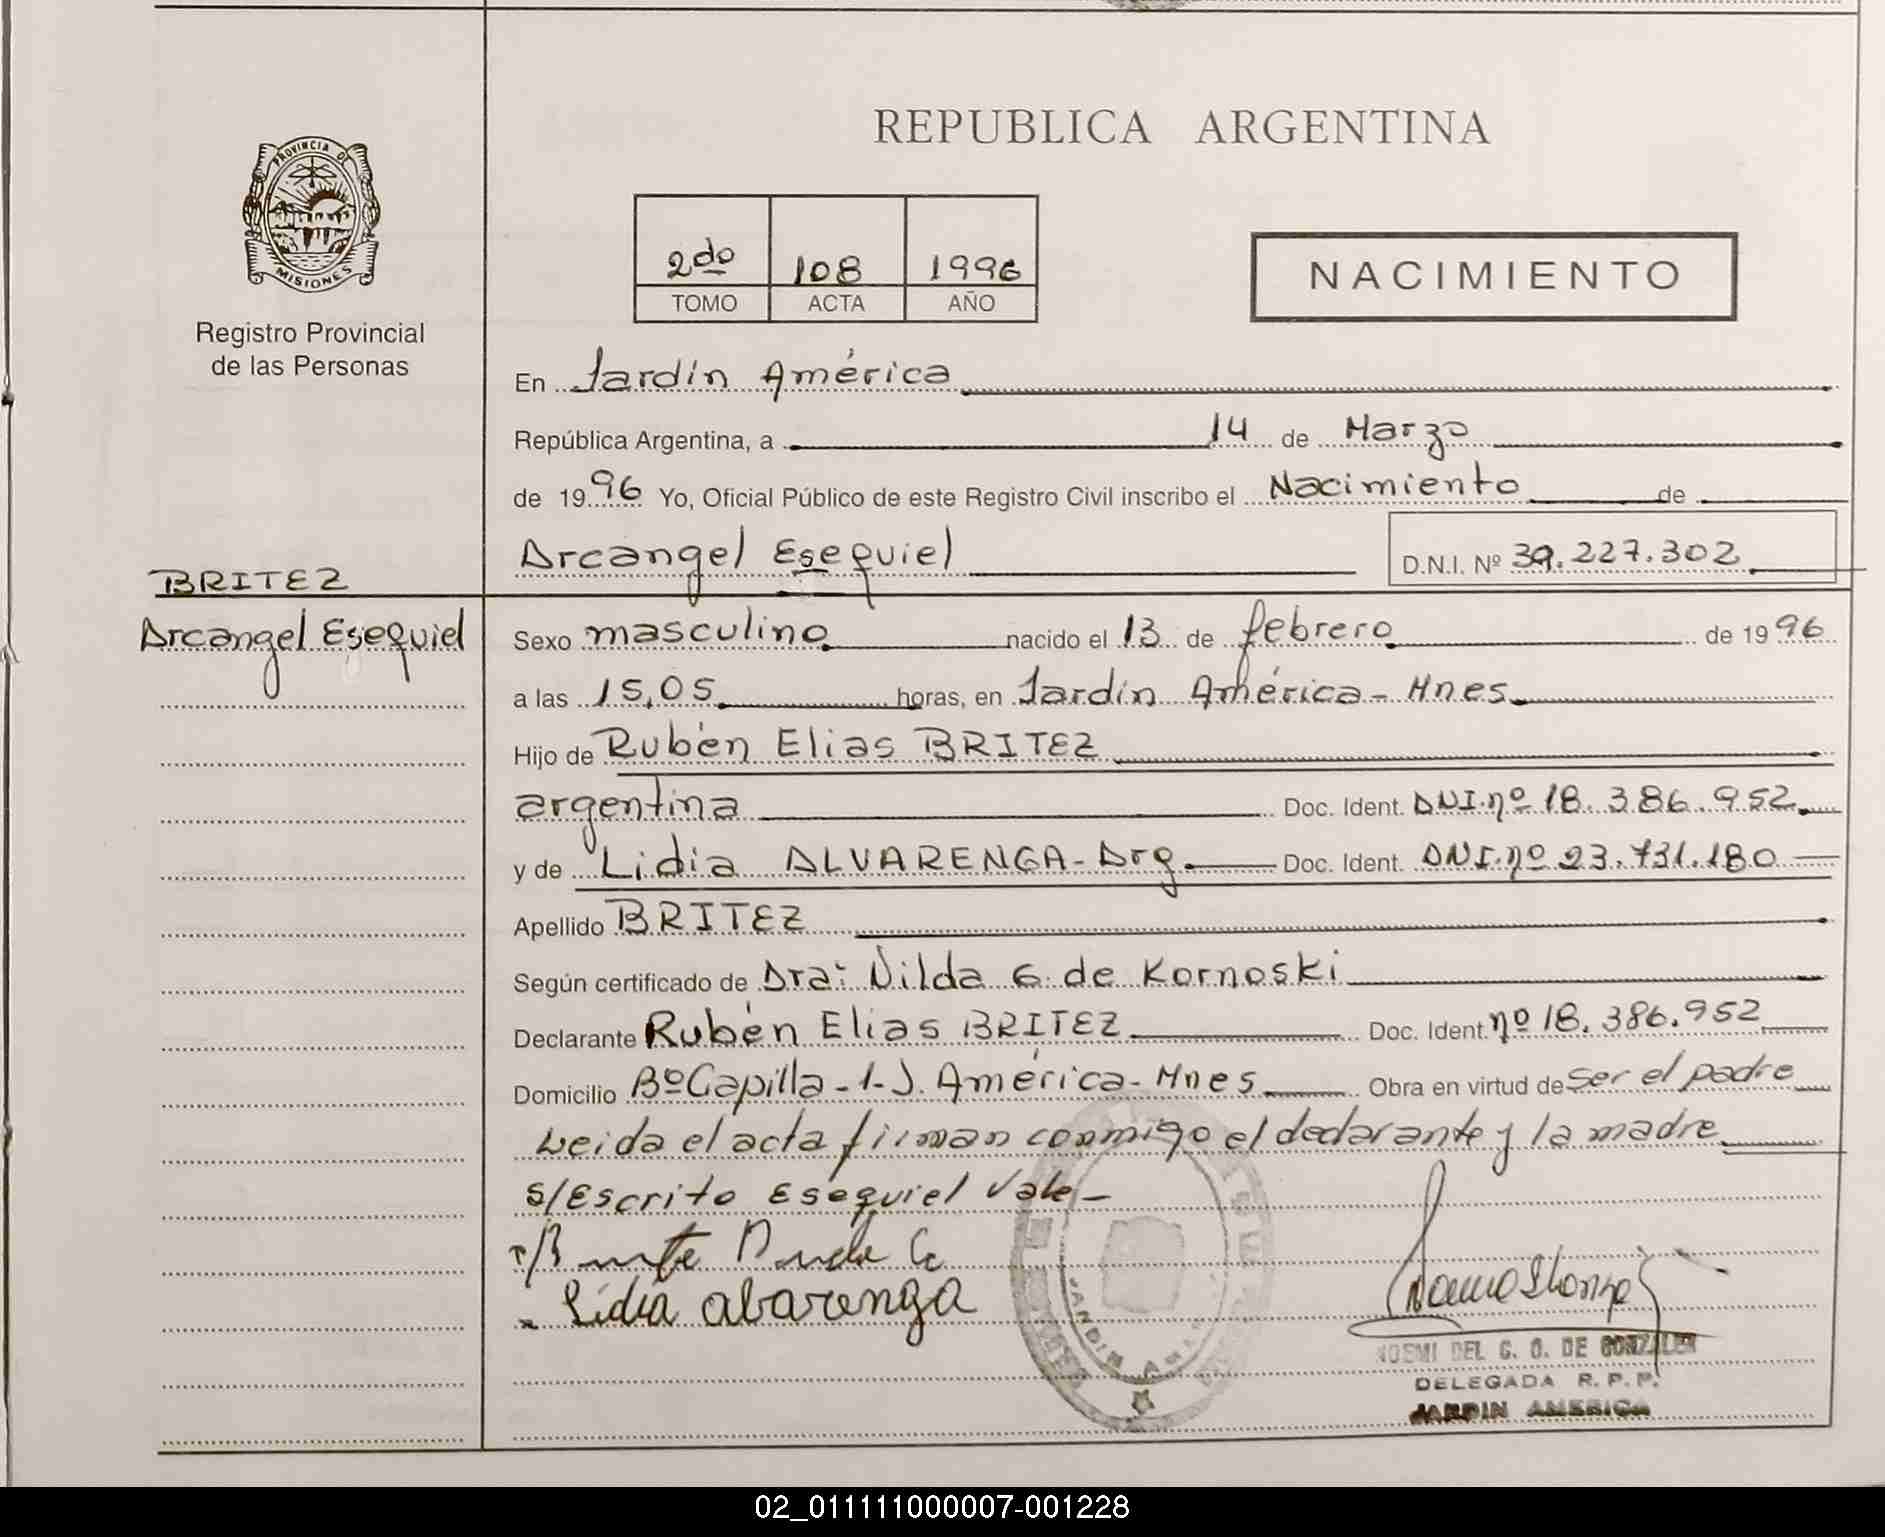 PROVINCIA DE
MISIONES
Registro Provincial
de las Personas
REPUBLICA ARGENTINA
2do 108 1996
TOMO ACTA AÑO
NACIMIENTO
En Jardín América
República Argentina, a 14 de Marzo
de 1996 Yo, Oficial Público de este Registro Civil inscribo el Nacimiento de
Arcangel Esequiel D.N.I. Nº 39.227.302
BRITEZ
Arcangel Esequiel
Sexo masculino nacido el 13 de febrero de 1996
a las 15,05 horas, en Jardín América - Mnes
Hijo de Rubén Elias BRITEZ
argentina Doc. Ident. DNI.nº 18.386.952
y de Lidia ALVARENGA - Arg. Doc. Ident. DNI.nº 23.731.180
Apellido BRITEZ
Según certificado de Dra: Nilda G. de Kornoski
Declarante Rubén Elias BRITEZ Doc. Ident. nº 18.386.952
Domicilio Bº Capilla - 1 - J. América - Mnes Obra en virtud de ser el padre
Leida el acta firman conmigo el declarante y la madre
S/Escrito Esequiel Vale -
Lidia albarenga
JARDIN
NOEMI DEL C. O. DE GONZALEZ
DELEGADA R. P. P.
JARDIN AMERICA
02_011111000007-001228